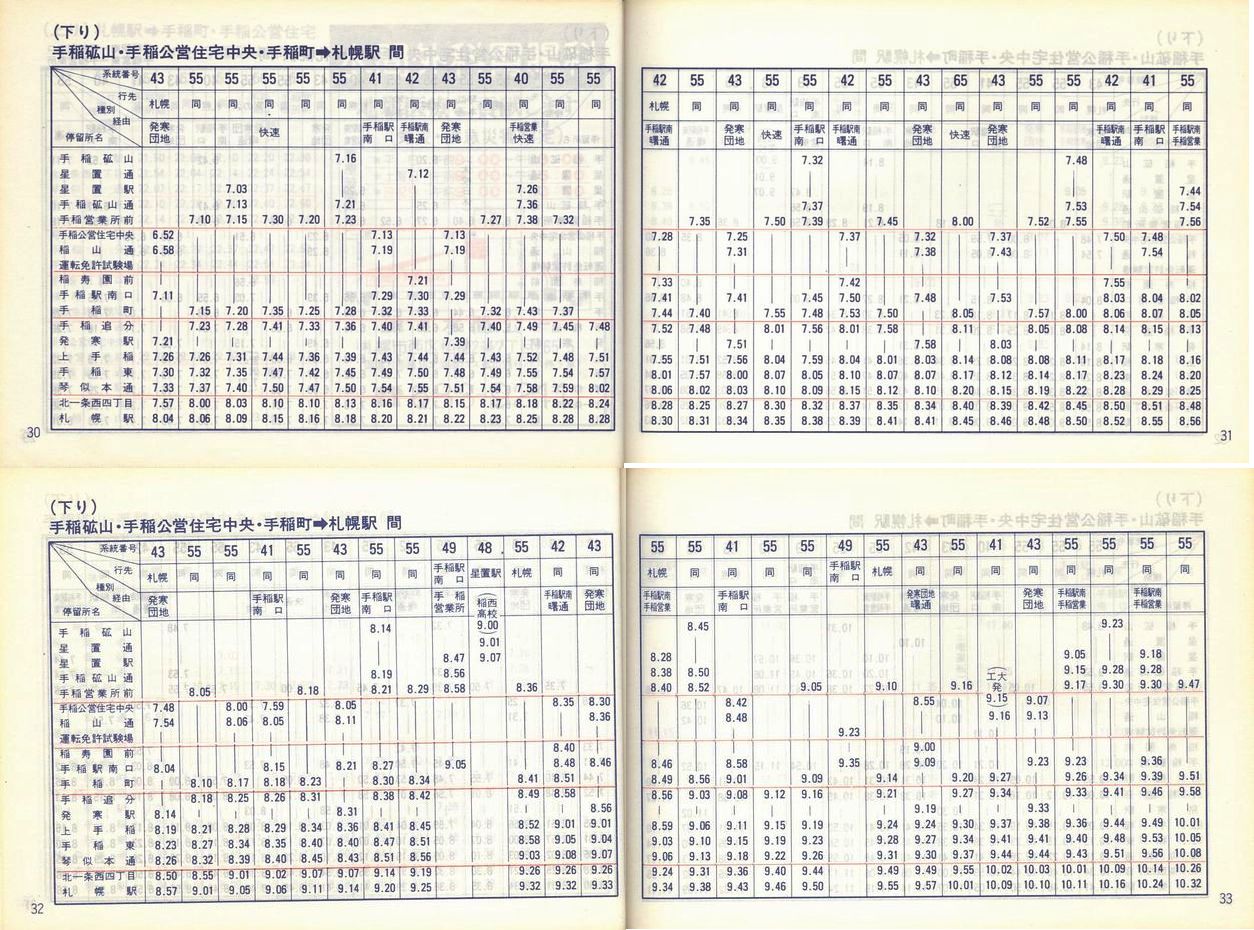 (下り)
手稲砿山・手稲公営住宅中央・手稲町➡札幌駅 間
系統番号 43 55 55 55 55 55 41 42 43 55 40 55 55
行先 札幌 同 同 同 同 同 同 同 同 同 同 同 同
種別
経由 発寒団地 快速 手稲駅南口 手稲駅南曙通 発寒団地 手稲営業快速
停留所名
手稲砿山 7.16
星置通 7.12
星置駅 7.03 7.26
手稲砿山通 7.13 7.21 7.36
手稲営業所前 7.10 7.15 7.30 7.20 7.23 7.27 7.38 7.32
手稲公営住宅中央 6.52 7.13 7.13
稲山通 6.58 7.19 7.19
運転免許試験場
稲寿園前 7.21
手稲駅南口 7.11 7.29 7.30 7.29
手稲町 7.15 7.20 7.35 7.25 7.28 7.32 7.33 7.32 7.43 7.37
手稲追分 7.23 7.28 7.41 7.33 7.36 7.40 7.41 7.40 7.49 7.45 7.48
発寒駅 7.21 7.39
上手稲 7.26 7.26 7.31 7.44 7.36 7.39 7.43 7.44 7.44 7.43 7.52 7.48 7.51
手稲東 7.30 7.32 7.35 7.47 7.42 7.45 7.49 7.50 7.48 7.49 7.55 7.54 7.57
琴似本通 7.33 7.37 7.40 7.50 7.47 7.50 7.54 7.55 7.51 7.54 7.58 7.59 8.02
北一条西四丁目 7.57 8.00 8.03 8.10 8.10 8.13 8.16 8.17 8.15 8.17 8.18 8.22 8.24
札幌駅 8.04 8.06 8.09 8.15 8.16 8.18 8.20 8.21 8.22 8.23 8.25 8.28 8.28
30
42 55 43 55 55 42 55 43 65 43 55 55 42 41 55
札幌 同 同 同 同 同 同 同 同 同 同 同 同 同 同
手稲駅南曙通 発寒団地 快速 手稲駅南口 手稲駅南曙通 発寒団地 快速 発寒団地 手稲駅南曙通 手稲駅南口 手稲駅南手稲営業
7.32 7.48
7.44
7.37 7.53 7.54
7.35 7.50 7.39 7.45 8.00 7.52 7.55 7.56
7.28 7.25 7.37 7.32 7.37 7.50 7.48
7.31 7.38 7.43 7.54
7.33 7.42 7.55
7.41 7.41 7.45 7.50 7.48 7.53 8.03 8.04 8.02
7.44 7.40 7.55 7.48 7.53 7.50 8.05 7.57 8.00 8.06 8.07 8.05
7.52 7.48 8.01 7.56 8.01 7.58 8.11 8.05 8.08 8.14 8.15 8.13
7.51 7.58 8.03
7.55 7.51 7.56 8.04 7.59 8.04 8.01 8.03 8.14 8.08 8.08 8.11 8.17 8.18 8.16
8.01 7.57 8.00 8.07 8.05 8.10 8.07 8.07 8.17 8.12 8.14 8.17 8.23 8.24 8.20
8.06 8.02 8.03 8.10 8.09 8.15 8.12 8.10 8.20 8.15 8.19 8.22 8.28 8.29 8.25
8.28 8.25 8.27 8.30 8.32 8.37 8.35 8.34 8.40 8.39 8.42 8.45 8.50 8.51 8.48
8.30 8.31 8.34 8.35 8.38 8.39 8.41 8.41 8.45 8.46 8.48 8.50 8.52 8.55 8.56
31
(下り)
手稲砿山・手稲公営住宅中央・手稲町➡札幌駅 間
系統番号 43 55 55 41 55 43 55 55 49 48 55 42 43
行先 札幌 同 同 同 同 同 同 同 手稲駅南口 星置駅 札幌 同 同
種別
経由 発寒団地 手稲駅南口 発寒団地 手稲駅南口 手稲営業所 (稲西高校) 手稲駅南曙通 発寒団地
停留所名
手稲砿山 8.14 9.00
星置通 9.01
星置駅 8.47 9.07
手稲砿山通 8.19 8.56
手稲営業所前 8.05 8.18 8.21 8.29 8.58 8.36
手稲公営住宅中央 7.48 8.00 7.59 8.05 8.35 8.30
稲山通 7.54 8.06 8.05 8.11 8.36
運転免許試験場
稲寿園前 8.40
手稲駅南口 8.04 8.15 8.21 8.27 9.05 8.48 8.46
手稲町 8.10 8.17 8.18 8.23 8.30 8.34 8.41 8.51
手稲追分 8.18 8.25 8.26 8.31 8.38 8.42 8.49 8.58
発寒駅 8.14 8.31 8.56
上手稲 8.19 8.21 8.28 8.29 8.34 8.36 8.41 8.45 8.52 9.01 9.01
手稲東 8.23 8.27 8.34 8.35 8.40 8.40 8.47 8.51 8.58 9.05 9.04
琴似本通 8.26 8.32 8.39 8.40 8.45 8.43 8.51 8.56 9.03 9.08 9.07
北一条西四丁目 8.50 8.55 9.01 9.02 9.07 9.07 9.14 9.19 9.26 9.26 9.26
札幌駅 8.57 9.01 9.05 9.06 9.11 9.14 9.20 9.25 9.32 9.32 9.33
32
55 55 41 55 55 49 55 43 55 41 43 55 55 55 55
札幌 同 同 同 同 手稲駅南口 札幌 同 同 同 同 同 同 同 同
手稲駅南手稲営業 手稲駅南口 発寒団地曙通 発寒団地 手稲駅南手稲営業 手稲駅南手稲営業
8.45 9.23
8.28 9.05 9.18
8.38 8.50 9.15 9.28 9.28
8.40 8.52 9.05 9.10 9.16 (工大発) 9.17 9.30 9.30 9.47
8.42 8.55 9.15 9.07
8.48 9.16 9.13
9.23
9.00
8.46 8.58 9.35 9.09 9.23 9.23 9.36
8.49 8.56 9.01 9.09 9.14 9.20 9.27 9.26 9.34 9.39 9.51
8.56 9.03 9.08 9.12 9.16 9.21 9.27 9.34 9.33 9.41 9.46 9.58
9.19 9.33
8.59 9.06 9.11 9.15 9.19 9.24 9.24 9.30 9.37 9.38 9.36 9.44 9.49 10.01
9.03 9.10 9.15 9.19 9.23 9.28 9.27 9.34 9.41 9.41 9.40 9.48 9.53 10.05
9.06 9.13 9.18 9.22 9.26 9.31 9.30 9.37 9.44 9.44 9.43 9.51 9.56 10.08
9.24 9.31 9.36 9.40 9.44 9.49 9.49 9.55 10.02 10.03 10.01 10.09 10.14 10.26
9.34 9.38 9.43 9.46 9.50 9.55 9.57 10.01 10.09 10.10 10.11 10.16 10.24 10.32
33